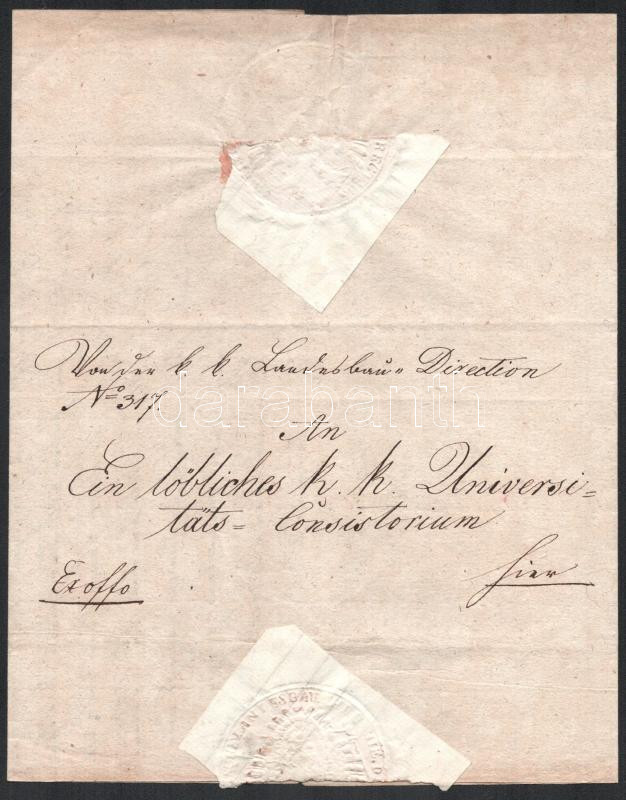 Von der k. k. Landesbau- Direction
No 317.
An
Ein löbliches k. k. Universi=
täts= Consistorium
Exoffo
hier
darabanth